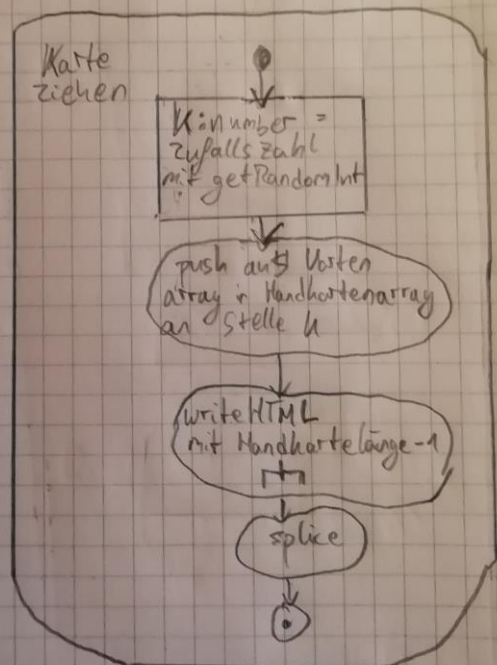 Karte
ziehen
K:number =
zufallszahl
mit getRandomInt
push aus Karten
array in Handkartenarray
an Stelle K
writeHTML
mit Handkartelänge-1
splice